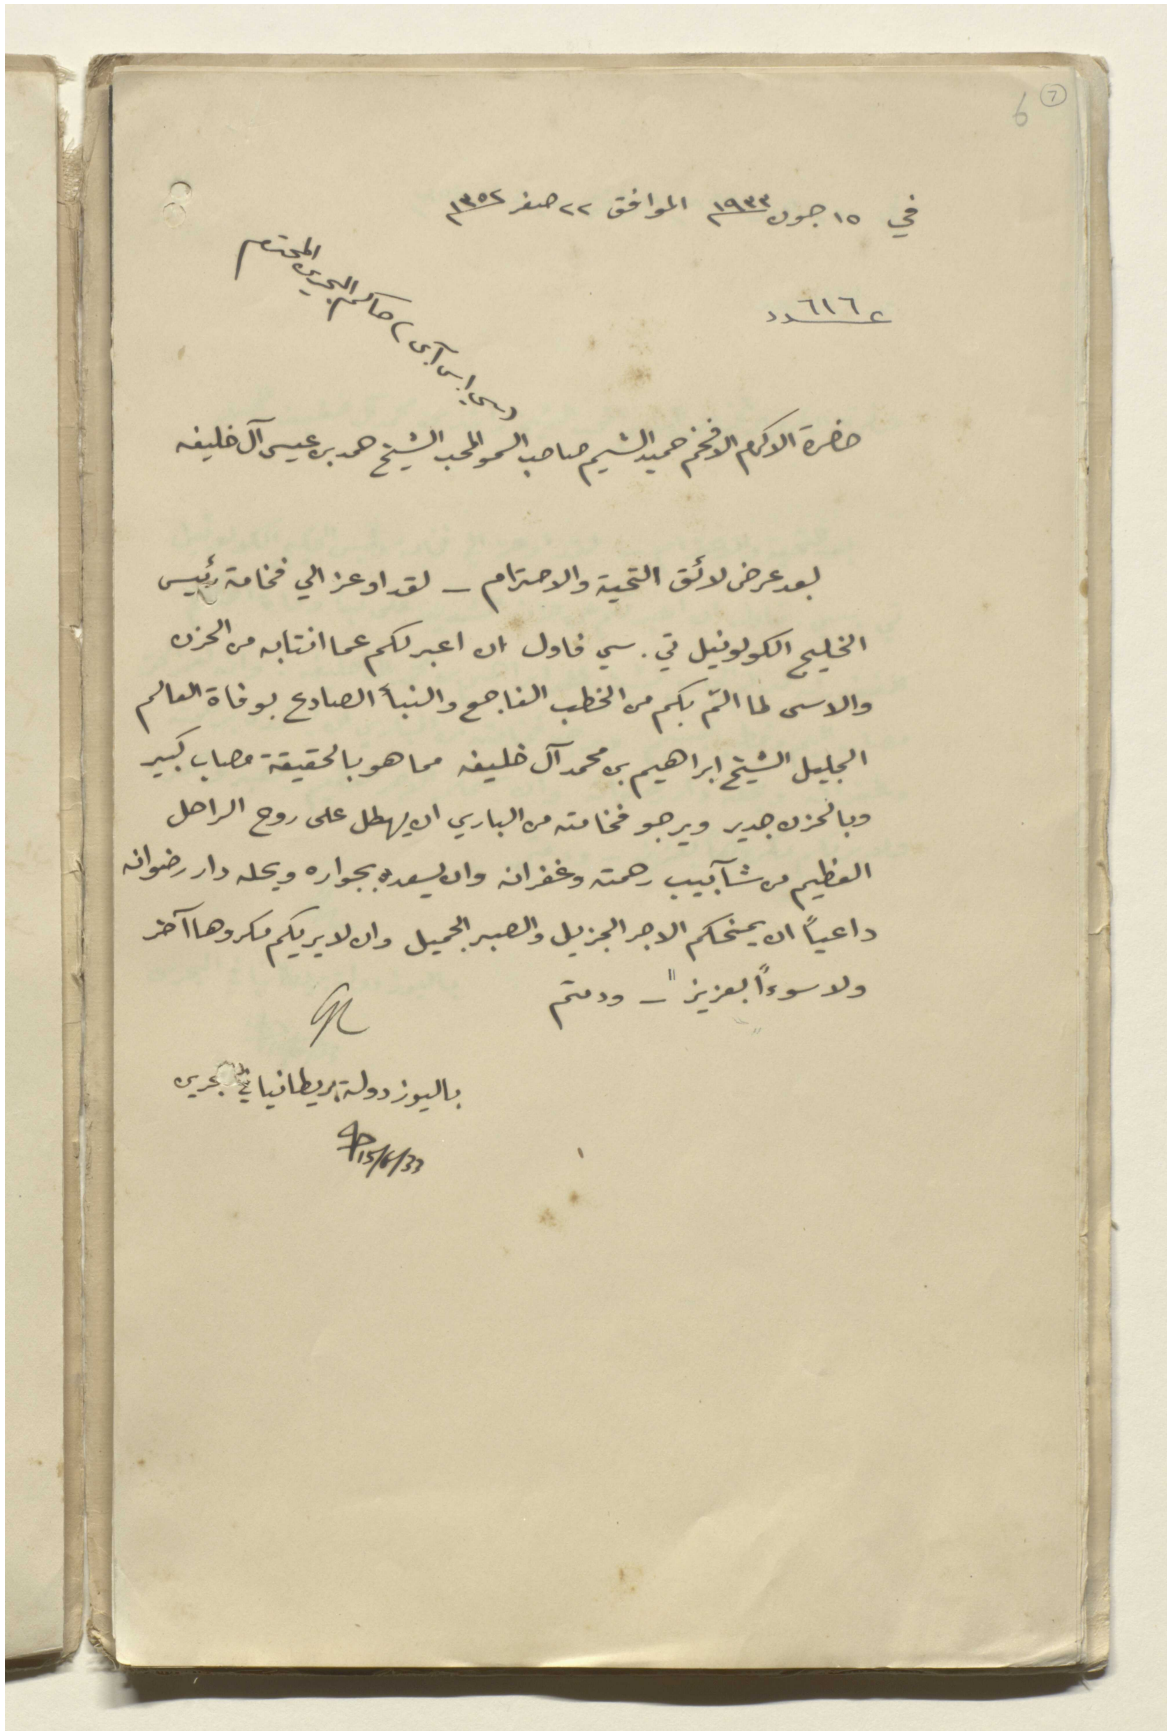 6 7
في ١٥ جون ١٩٣٣ الموافق ٢٢ صفر ١٣٥٢
عـ ٦١٦ ـدد
حضرة الاكرم الافخم حميد الشيم صاحب السمو المحب الشيخ حمد بن عيسى آل خليفه
سي اس آي، حاكم البحرين المحترم
بعد عرض لائق التحية والاحترام – لقد اوعز الي فخامة رئيس
الخليج الكولونيل تي. سي فاول ان اعبر لكم عما انتابه من الحزن
والاسى لما المّ بكم من الخطب الفاجع والنبأ الصادع بوفاة العالم
الجليل الشيخ ابراهيم بن محمد آل خليفه مما هو بالحقيقة مصاب كبير
وبالحزن جدير ويرجو فخامته من الباري ان يهطل على روح الراحل
العظيم من شآبيب رحمته وغفرانه وان يسعده بجواره ويحله دار رضوانه
داعياً ان يمنحكم الاجر الجزيل والصبر الجميل وان لا يريكم مكروها آخر
ولا سوءاً بعزيز" – ودمتم
باليوز دولة بريطانيا في بحرين
15/6/33